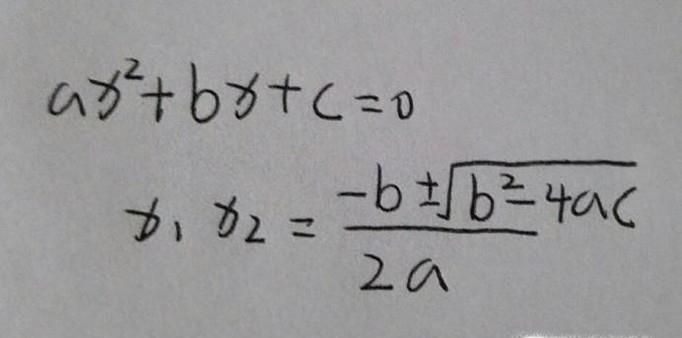 ax²+bx+c=0
x₁ x₂ = (-b±√(b²-4ac))/(2a)